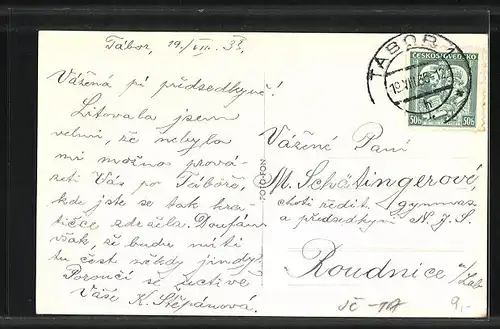 Tábor, 19./VIII. 35.
Vážená pí předsedkyně!
Litovala jsem
velmi, že nebylo
mi možno prová-
zeti Vás po Táboře,
kde jste se tak krá-
tičce zdržela. Doufám
však, že budu míti
tu čest někdy jindy.
Poroučí se uctivě
Vaše K. Štěpánová.
FOTO-FON
TÁBOR 1
ČESKOSLOVENSKO
50h 50h
Vážené Paní
M. Schätingerové,
choti ředit. gymnas.
a předsedkyni N. J. S.
Roudnice n/Lab.
9,-